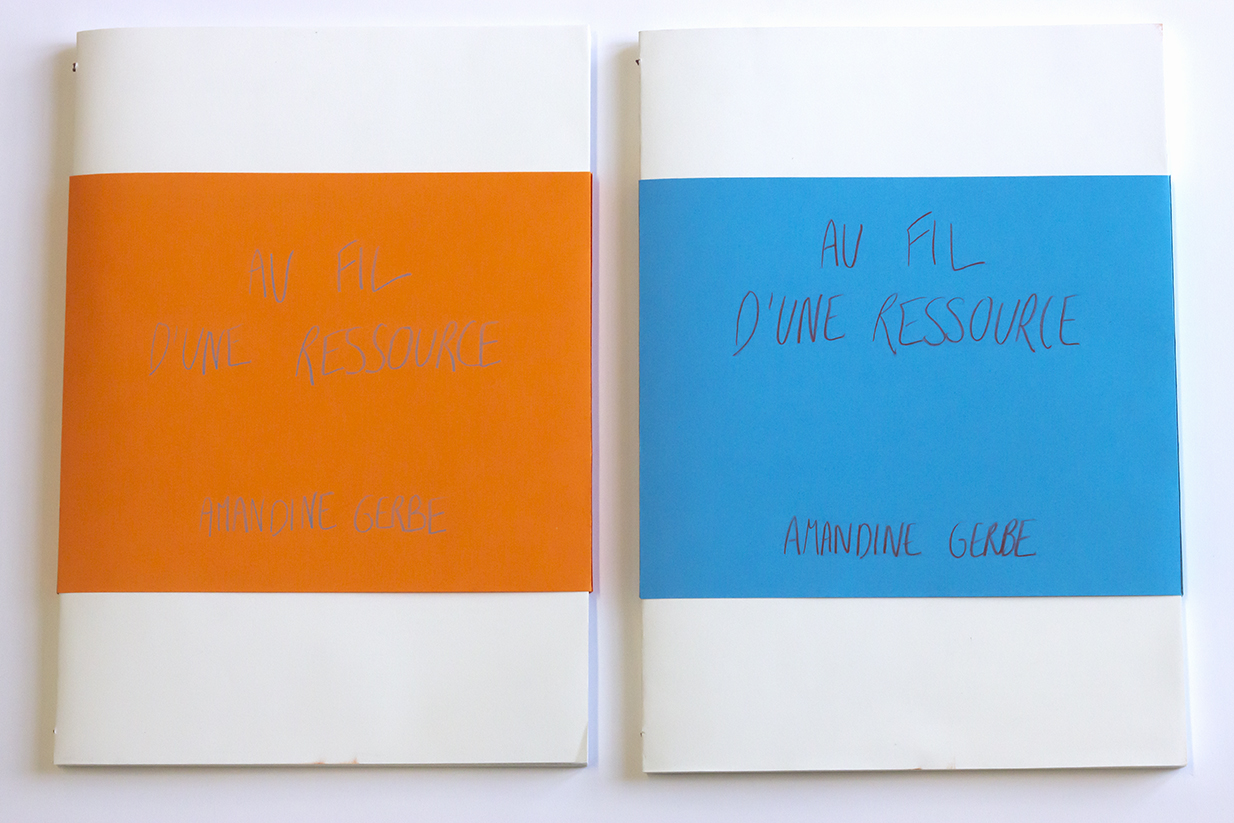 AU FIL
D'UNE RESSOURCE
AMANDINE GERBE
AU FIL
D'UNE RESSOURCE
AMANDINE GERBE